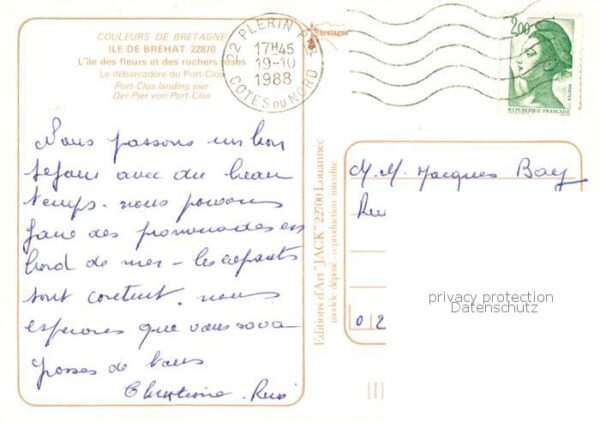 COULEURS DE BRETAGNE
ILE DE BREHAT 22870
L'île des fleurs et des rochers roses
Le débarcadère du Port-Clos
Port-Clos landing pier
Der Pier von Port-Clos
bretagne
22 PLERIN P.AL
17H45
19-10
1988
COTES DU NORD
2,00
POSTES
REPUBLIQUE FRANÇAISE
Nous passons un bon
séjour avec du beau
temps. nous pouvons
faire des promenades en
bord de mer - les enfants
sont content. nous
esperons que vous
de vous
Christiane
Editions d'Art "JACK" 22700 Louannec
modèle déposé - reproduction interdite
M.M. Jacques
Rue
0 2
privacy protection
Datenschutz